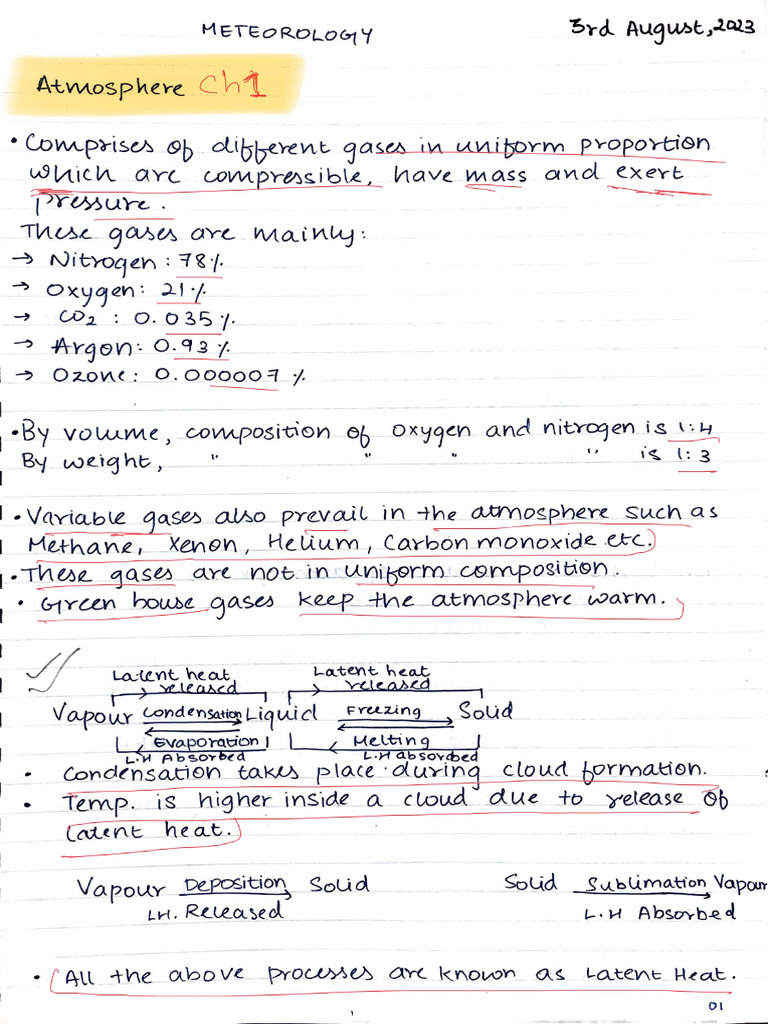 METEOROLOGY
3rd August, 2023
Atmosphere Ch1
• Comprises of different gases in uniform proportion
which are compressible, have mass and exert
pressure.
These gases are mainly:
→ Nitrogen: 78%
→ Oxygen: 21%
→ CO2 : 0.035%
→ Argon: 0.93%
→ Ozone: 0.000007 %
• By volume, composition of oxygen and nitrogen is 1:4
By weight, " " " " is 1:3
• Variable gases also prevail in the atmosphere such as
Methane, Xenon, Helium, Carbon monoxide etc.
• These gases are not in uniform composition.
• Green house gases keep the atmosphere warm.
Latent heat released Latent heat released
Vapour Condensation Liquid Freezing Solid
Evaporation Melting
L.H Absorbed L.H absorbed
• Condensation takes place during cloud formation.
• Temp. is higher inside a cloud due to release of
latent heat.
Vapour Deposition Solid Solid Sublimation Vapour
LH. Released L.H Absorbed
• All the above processes are known as Latent Heat.
01